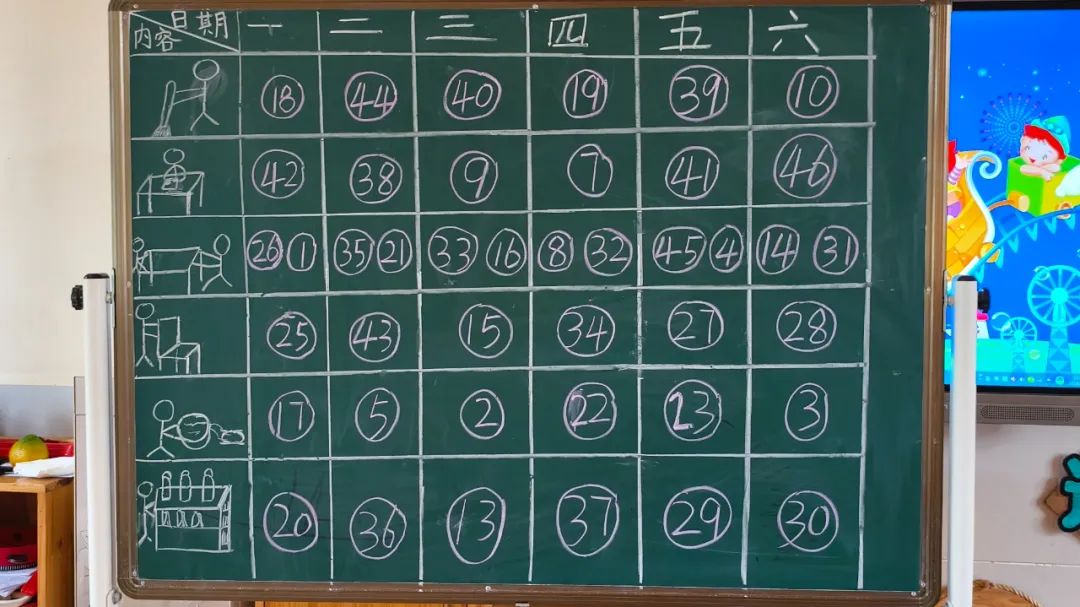 日期 内容 一 二 三 四 五 六
18 44 40 19 39 10
42 38 9 7 41 46
26 1 35 21 33 16 8 32 45 4 14 31
25 43 15 34 27 28
17 5 2 22 23 3
20 36 13 37 29 30